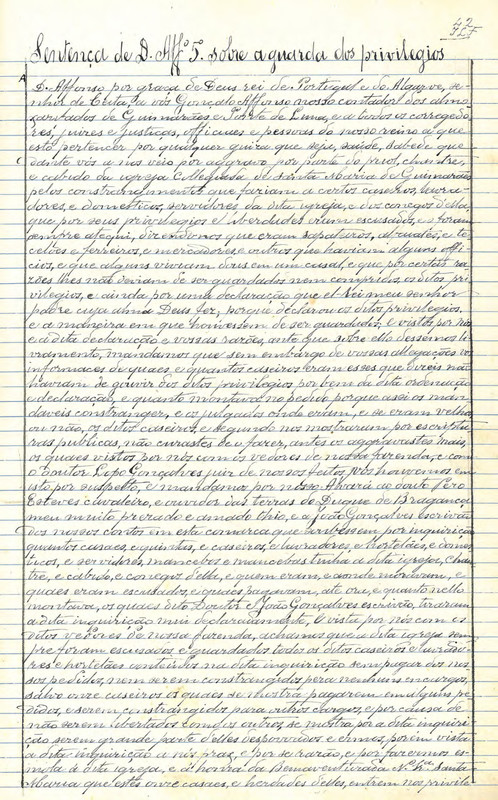 42
Sentença de D. Affº 5. sobre a guarda dos privilegios
D. Affonso por graça de Deus rei de Portugal e do Algarve, se-
nhor de Ceuta, A vós Gonçalo Affonso nosso contador dos almo-
xarifados de Guimarães e Ponte de Lima, e a todos os corregedo-
res, juizes e justiças, officiaes e pessoas do nosso reino a que
esto pertencer por qualquer guiza que seja, saúde, sabede que
dante vós a nós veio por aggravo por parte do priol, chantre,
e cabido da igreja Collegiada de Santa Maria de Guimarães
pelos constrangimentos que fariam a certos caseiros, lavra-
dores, e domesticos, servidores da dita igreja, e dos conegos d'ella,
que por seus privilegios e liberdades eram escusados, e o foram
sempre ataqui, dizendo nos que eram sapateiros, alfaiates, e te-
celões e ferreiros, e mercadores, e outros que haviam alguns offi-
cios, e que alguns viviam dous em um casal, e que por certas ra-
zões lhes não deviam de ser guardados nem compridos os ditos pri-
vilegios, e ainda por uma declaração que el-Rei meu senhor
padre cuja alma Deus haja, porque declarou os ditos privilegios,
e a maneira em que houvessem de ser guardados, e vistos por nós
e a dita declaração e vossas razões, ante que sobre ello dessemos li-
vramento, mandamos que sem embargo de vossas allegações vos
informaes de quaes, e quantos caseiros eram esses que dizeis não
haviam de gouvir dos ditos privilegios por bem da dita ordenação
e declaração, e quanto montava no pedido porque assi os man-
daveis constranger, e os julgados onde eram, e se eram velhos
ou não, os ditos caseiros, e segundo nos mostraram por escriptu-
ras publicas, não curastes de o fazer, antes os aggravastes mais,
os quaes vistos por nós com os vedores de nossa fazenda, e com
o doutor Lopo Gonçalves juiz de nossos feitos, vos houvemos em
isto por suspeito, e mandamos por nosso Alvará ao doutor Pero
Esteves cavaleiro, e ouvidor das terras do Duque de Bragança
meu muito prezado e amado thio, e a João Gonçalves escrivão
dos nossos contos em esta comarca que soubessem por inquirição
quantos casaes, e quintas, e caseiros, e lavradores, e hortelães, e domes-
ticos, e servidores, mancebos e mancebas tinha a dita igreja, chan-
tre, e cabido, e conegos d'ella, e quem eram, e aonde moravam, e
quaes eram escusados, e quaes pagavam, até ora, e quanto n'ello
montava, os quaes dito Doutor e João Gonçalves escrivão, tiraram
a dita inquirição mui declaradamente, e vista por nós com os
ditos vedores de nossa fazenda, achamos que a dita igreja sem-
pre foram escusados e guardados todos os ditos caseiros e lavrado-
res e hortelães contidos na dita inquirição sem pagar dos nos-
sos pedidos, nem serem constrangidos pera nenhuns encarregos,
salvo onze caseiros os quaes se mostra pagarem em alguns pe-
didos, e serem constrangidos para outros cargos, e por causa de
não serem libertados como os outros, se mostra por a dita inquiri-
ção serem grande parte d'elles despovoados e ermos, porem vista
a dita inquirição a nós praz, e por se razão, e por fazermos es-
mola á dita igreja, e á honra da Bemaventurada N. Sra. Santa
Maria que estes onze casaes, e herdades d'elles, entrem nos privile-